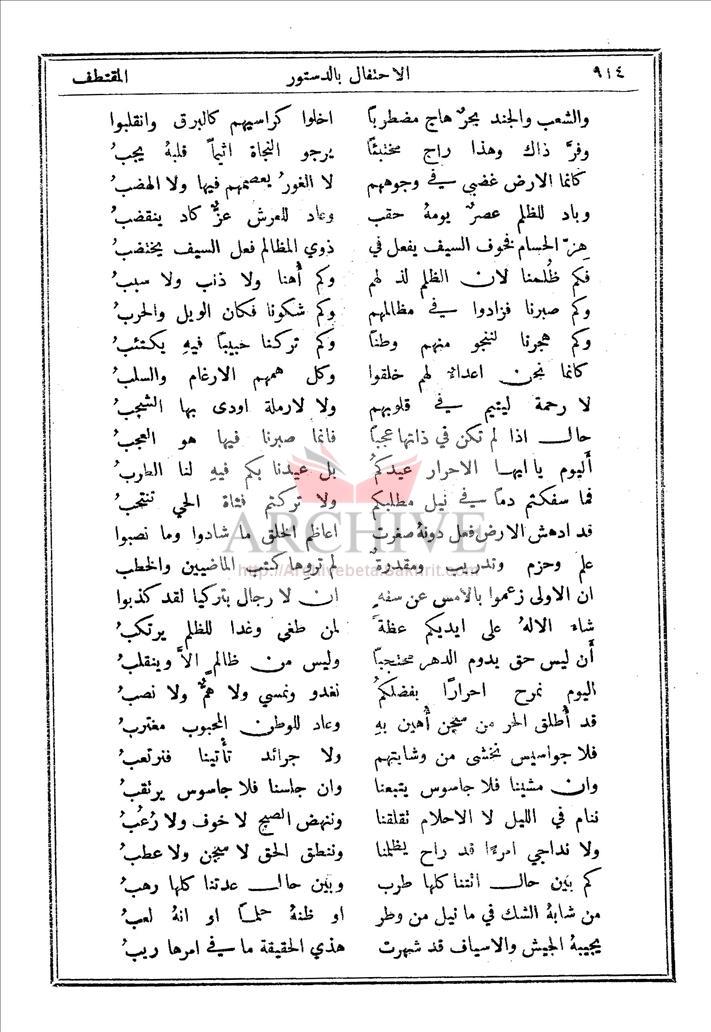 ٩١٤ الاحتفال بالدستور المقتطف
والشعب والجند بحرٌ هاج مضطرباً اخلوا كراسيهم كالبرق وانقلبوا
وفرَّ ذاك وهذا راح مختبئاً يرجو النجاة اثيماً قلبهُ يجبُ
كانما الارض غضبي في وجوههم لا الغورُ يعصمهم فيها ولا الهضبُ
وباد للظلم عصرٌ يومهُ حقب وعاد للعرش عزٌّ كاد ينقضبُ
هزّ الحسام فخوف السيف يفعل في ذوي المظالم فعل السيف يختضبُ
فكم ظُلمنا لان الظلم لذ لهم وكم أُهنا ولا ذنب ولا سببُ
وكم صبرنا فزادوا في مظالمهم وكم شكونا فكان الويل والحربُ
وكم هجرنا لننجو منهم وطناً وكم تركنا حبيباً فيهِ يكتئبُ
كانما نحن اعداءٌ لهم خلقوا وكل همهم الارغام والسلبُ
لا رحمة ليتيم في قلوبهم ولا لارملة اودى بها الشجبُ
حال اذا لم تكن في ذاتها عجباً فانما صبرنا فيها هو العجبُ
أليوم يا ايها الاحرار عيدكُمُ بل عيدنا بكم فيهِ لنا الطربُ
فما سفكتم دماً في نيل مطلبكم ولا تركتم فتاة الحي تنتحبُ
قد ادهش الارض فعل دونهُ صغرت اعاظم الخلق ما شادوا وما نصبوا
علم وحزم وتدريب ومقدرة لم تروها كتب الماضيين والخطب
ان الاولى زعموا بالامس عن سفهٍ ان لا رجال بتركيا لقد كذبوا
شاء الالهُ على ايديكم عظةً لمن طغي وغدا للظلم يرتكبُ
أَن ليس حق يدوم الدهر محتجباً وليس من ظالمٍ الاَّ وينقلبُ
اليوم نمرح احراراً بفضلكُمُ نغدو ونمسي ولا همٌّ ولا نصبُ
قد أُطلق الحر من سجن أُهين بهِ وعاد للوطن المحبوب مغتربُ
فلا جواسيس نخشى من وشايتهم ولا جرائد تأتينا فنرتعبُ
وان مشينا فلا جاسوس يتبعنا وان جلسنا فلا جاسوس يرتقبُ
ننام في الليل لا الاحلام تقلقنا وننهض الصبح لا خوف ولا رُعُبُ
ولا نداجي امرءًا قد راح يظلمنا وننطق الحق لا سجن ولا عطبُ
كم بين حال اتتنا كلها طرب وبين حال عدتنا كلها رهبُ
من شابهُ الشك في ما نيل من وطر او ظنهُ حلماً او انهُ لعبُ
يجيبهُ الجيش والاسياف قد شهرت هذي الحقيقة ما في امرها ريبُ
ARCHIVE
http://Archivebeta.Sakhrit.com